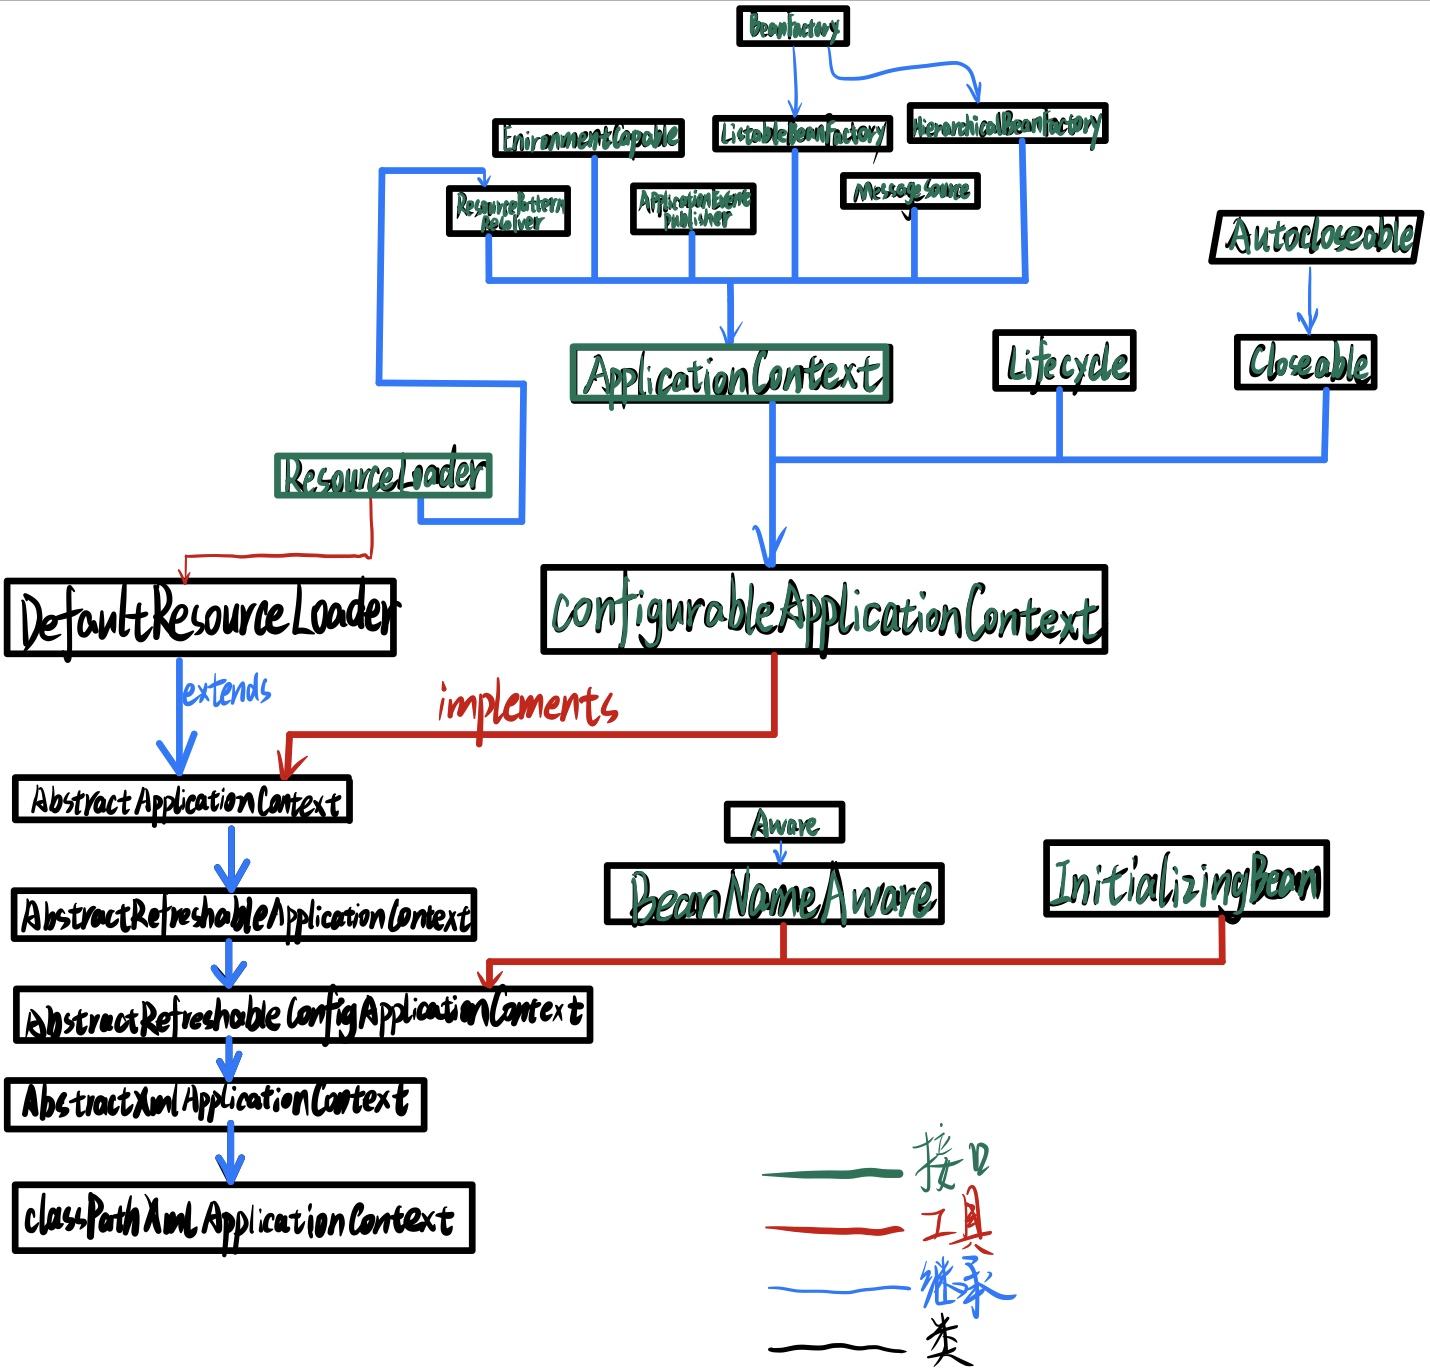 BeanFactory
EnironmentCapable
ListableBeanFactory
HierarchicalBeanFactory
ResourcePattern
Resolver
ApplicationEvent
Publisher
MessageSource
Autocloseable
ApplicationContext
Lifecycle
Closeable
ResourceLoader
DefaultResourceLoader
configurableApplicationContext
extends
implements
AbstractApplicationContext
Aware
BeanNameAware
InitializingBean
AbstractRefreshableApplicationContext
AbstractRefreshableConfigApplicationContext
AbstractXmlApplicationContext
classPathXmlApplicationContext
接口
工具
继承
类